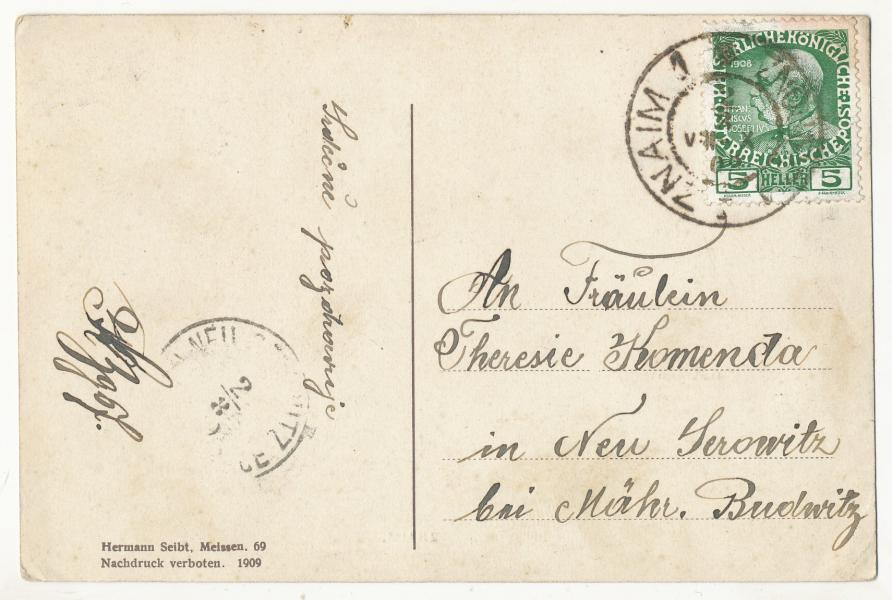 Srdečně pozdravuje
ZNAIM 1
KAISERLICHE KÖNIGLICHE ÖSTERREICHISCHE POST
1908
FRANCISCUS
JOSEPHUS
5 HELLER 5
An Fräulein
Theresie Komenda
in Neu Serowitz
bei Mähr. Budwitz
NEU
Hermann Seibt, Meissen. 69
Nachdruck verboten. 1909